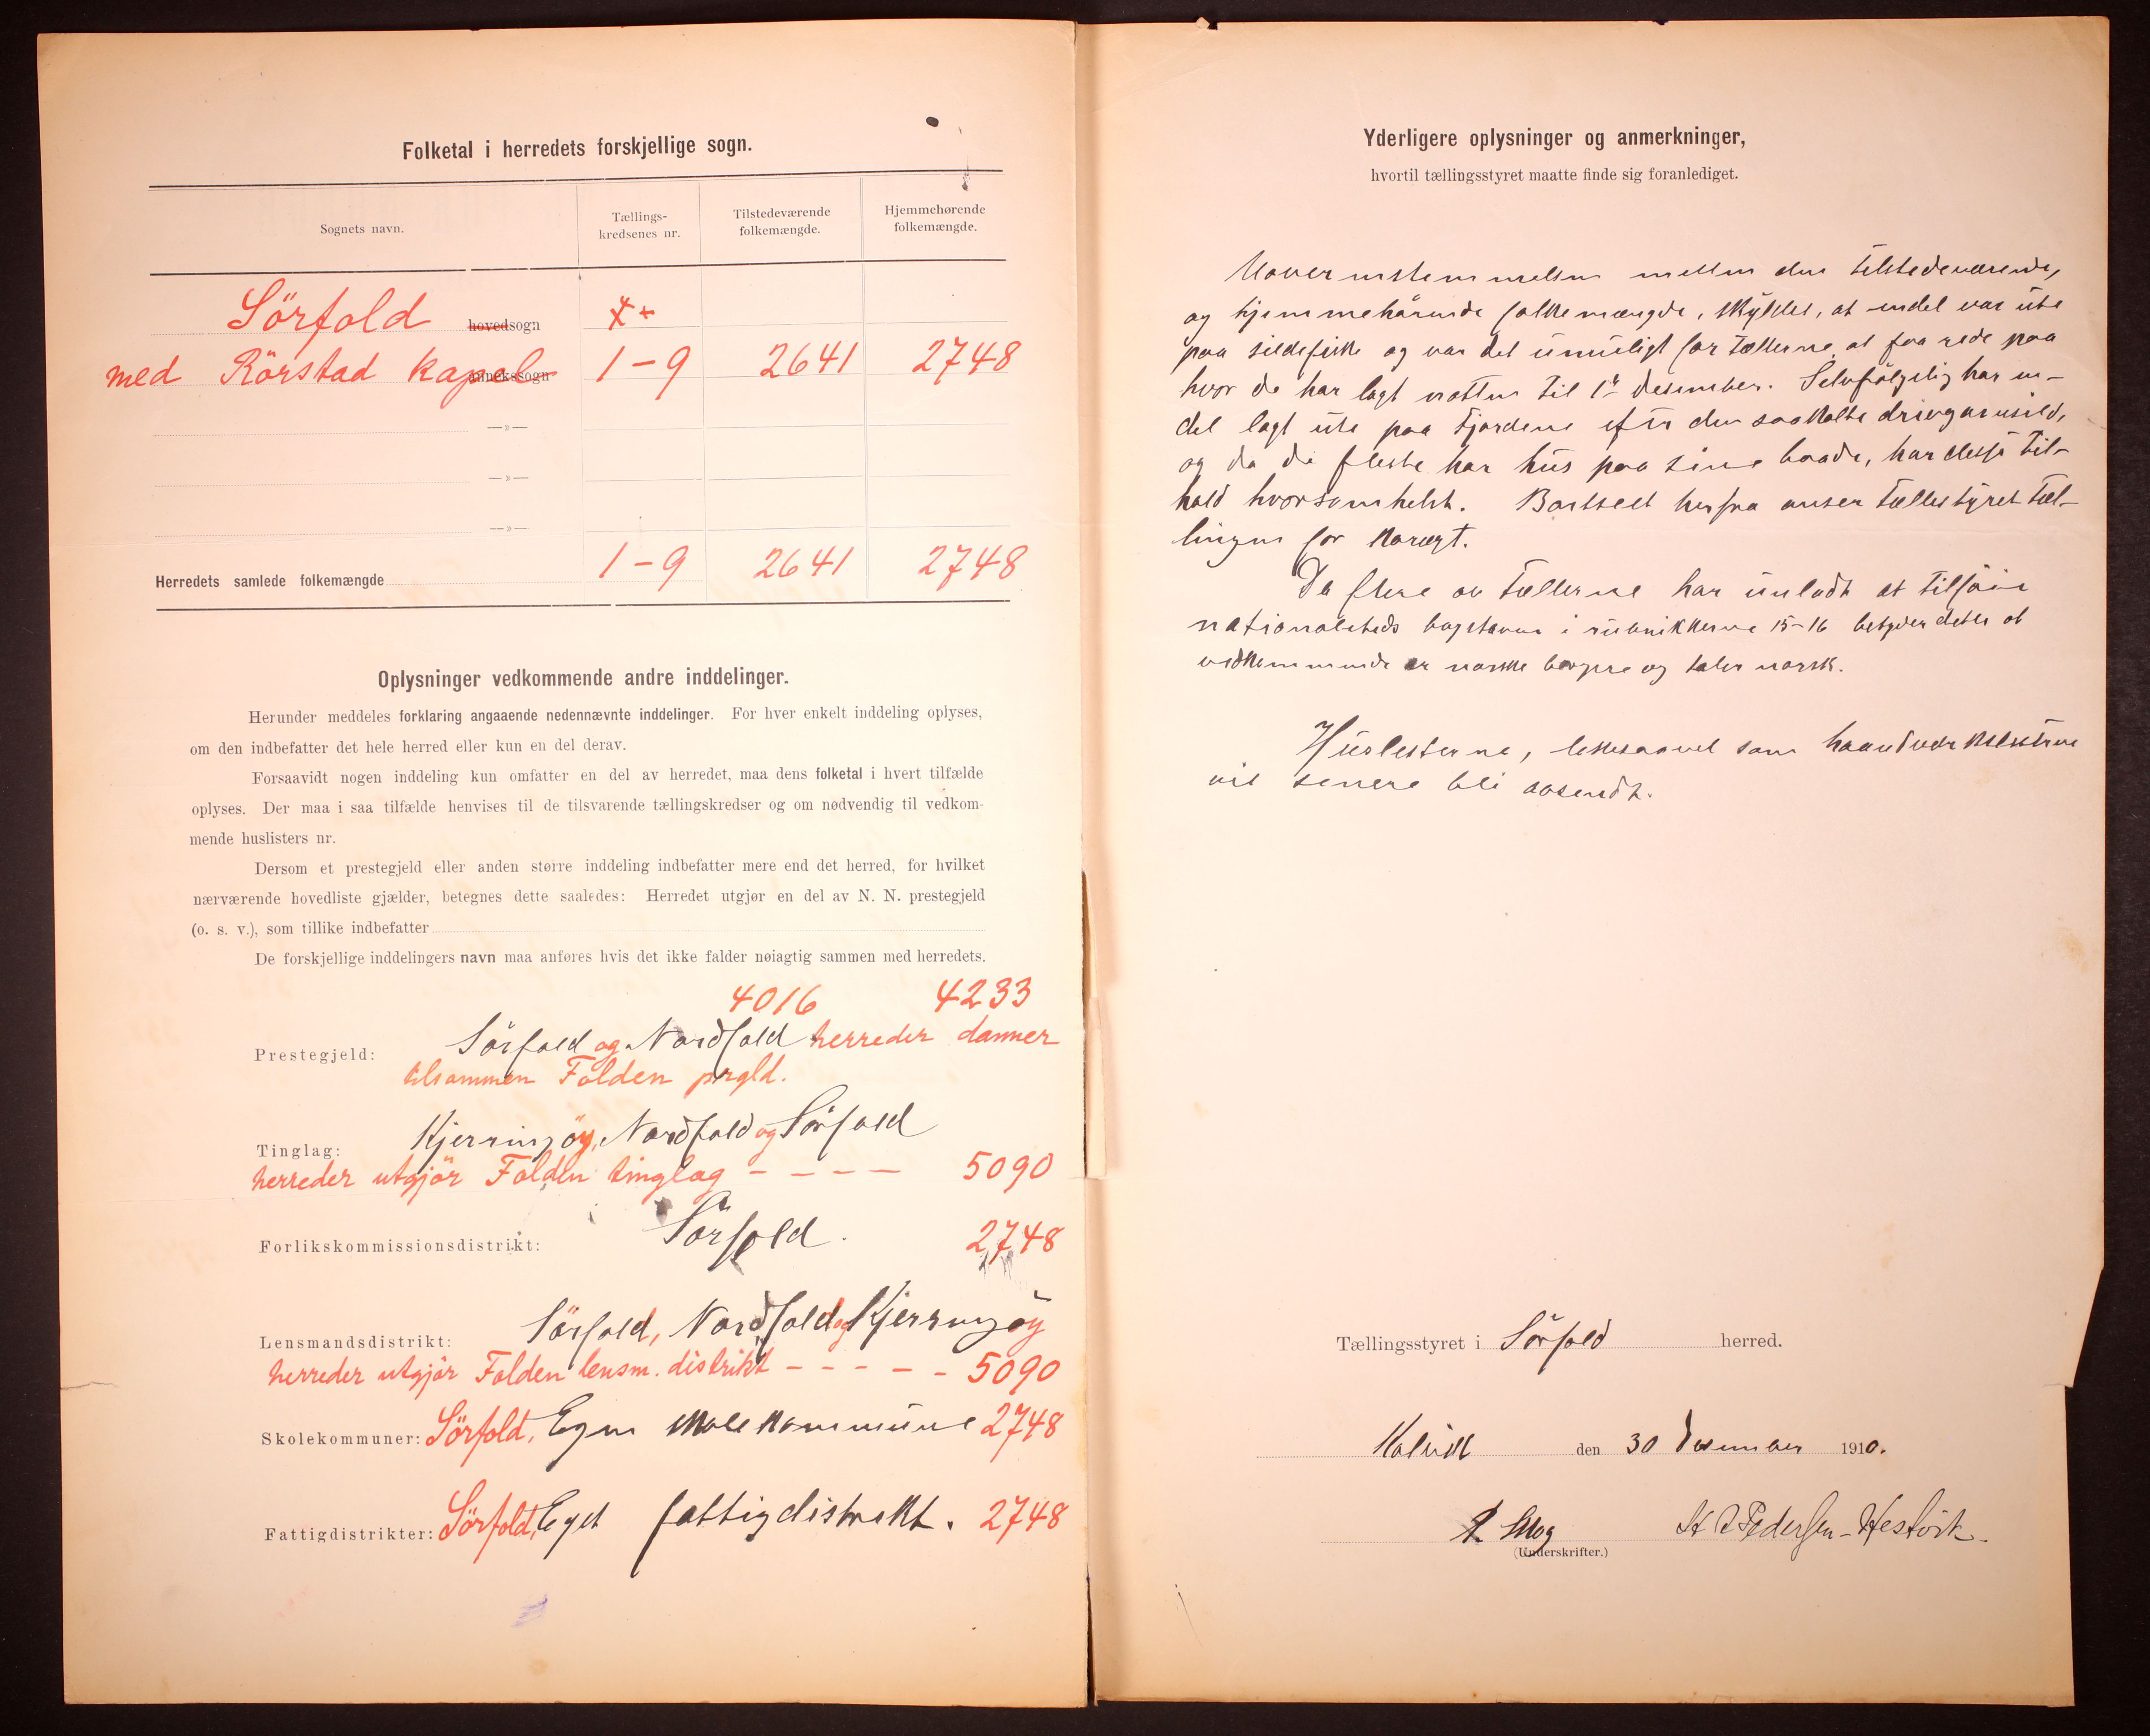 Folketal i herredets forskjellige sogn.
Sognets navn.
Tællings-
kredsenes nr.
Tilstedeværende
folkemængde.
Hjemmehørende
folkemængde.
Sörfold hovedsogn
med Rörstad kapel annekssogn 1-9 2641 2748
—»—
—»—
—»—
Herredets samlede folkemængde 1-9 2641 2748
Oplysninger vedkommende andre inddelinger.
Herunder meddeles forklaring angaaende nedennævnte inddelinger. For hver enkelt inddeling oplyses,
om den indbefatter det hele herred eller kun en del derav.
Forsaavidt nogen inddeling kun omfatter en del av herredet, maa dens folketal i hvert tilfælde
oplyses. Der maa i saa tilfælde henvises til de tilsvarende tællingskredser og om nødvendig til vedkom-
mende huslisters nr.
Dersom et prestegjeld eller anden større inddeling indbefatter mere end det herred, for hvilket
nærværende hovedliste gjælder, betegnes dette saaledes: Herredet utgjør en del av N. N. prestegjeld
(o. s. v.), som tillike indbefatter
De forskjellige inddelingers navn maa anføres hvis det ikke falder nøiagtig sammen med herredets.
4016 4233
Prestegjeld: Sörfold og Nordfold herreder danner
tilsammen Folden prgld.
Tinglag: Kjerringöy, Nordfold og Sörfold
herreder utgjör Folden tinglag - - - - 5090
Forlikskommissionsdistrikt: Sörfold. 2748
Lensmandsdistrikt: Sörfold, Nordfold og Kjerringöy
herreder utgjör Folden lensm. distrikt - - - - - 5090
Skolekommuner: Sörfold, Egen skolekommune 2748
Fattigdistrikter: Sörfold, Eget fattigdistrikt. 2748
Yderligere oplysninger og anmerkninger,
hvortil tællingsstyret maatte finde sig foranlediget.
Uoverenstemmelsen mellem den tilstedeværende,
og hjemmehörende folkemængde, skyldes, at endel var ute
paa sildefiske og var det umuligt for tællerne at faa rede paa
hvor de har lagt natten til 1ste desember. Selvfölgelig har en-
del lagt ute paa fjordene efter den saakalte drivgarnsild,
og da de fleste har hus paa sine baade, har disse til-
hold hvorsomhelst. Bortseet herfra anser tællestyret tæl-
lingen for korægt.
Da flere av tællerne har unladt at tilföie
nationalitets bogstaver i rubrikkerne 15-16 betyder dette at
vedkommende er norske borgere og taler norsk.
Huslisterne, likesaavel som haandverkslisterne
vil senere bli avsendt.
Tællingsstyret i Sörfold herred.
den 30 Desember 1910.
A Skog H A Pedersen-
(Underskrifter.)